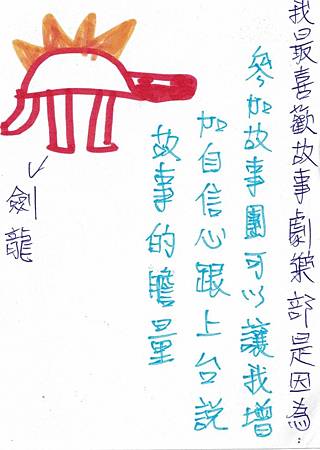 我最喜歡故事劇樂部是因為:
參加故事團可以讓我增
加自信心跟上台說
故事的膽量
劍龍